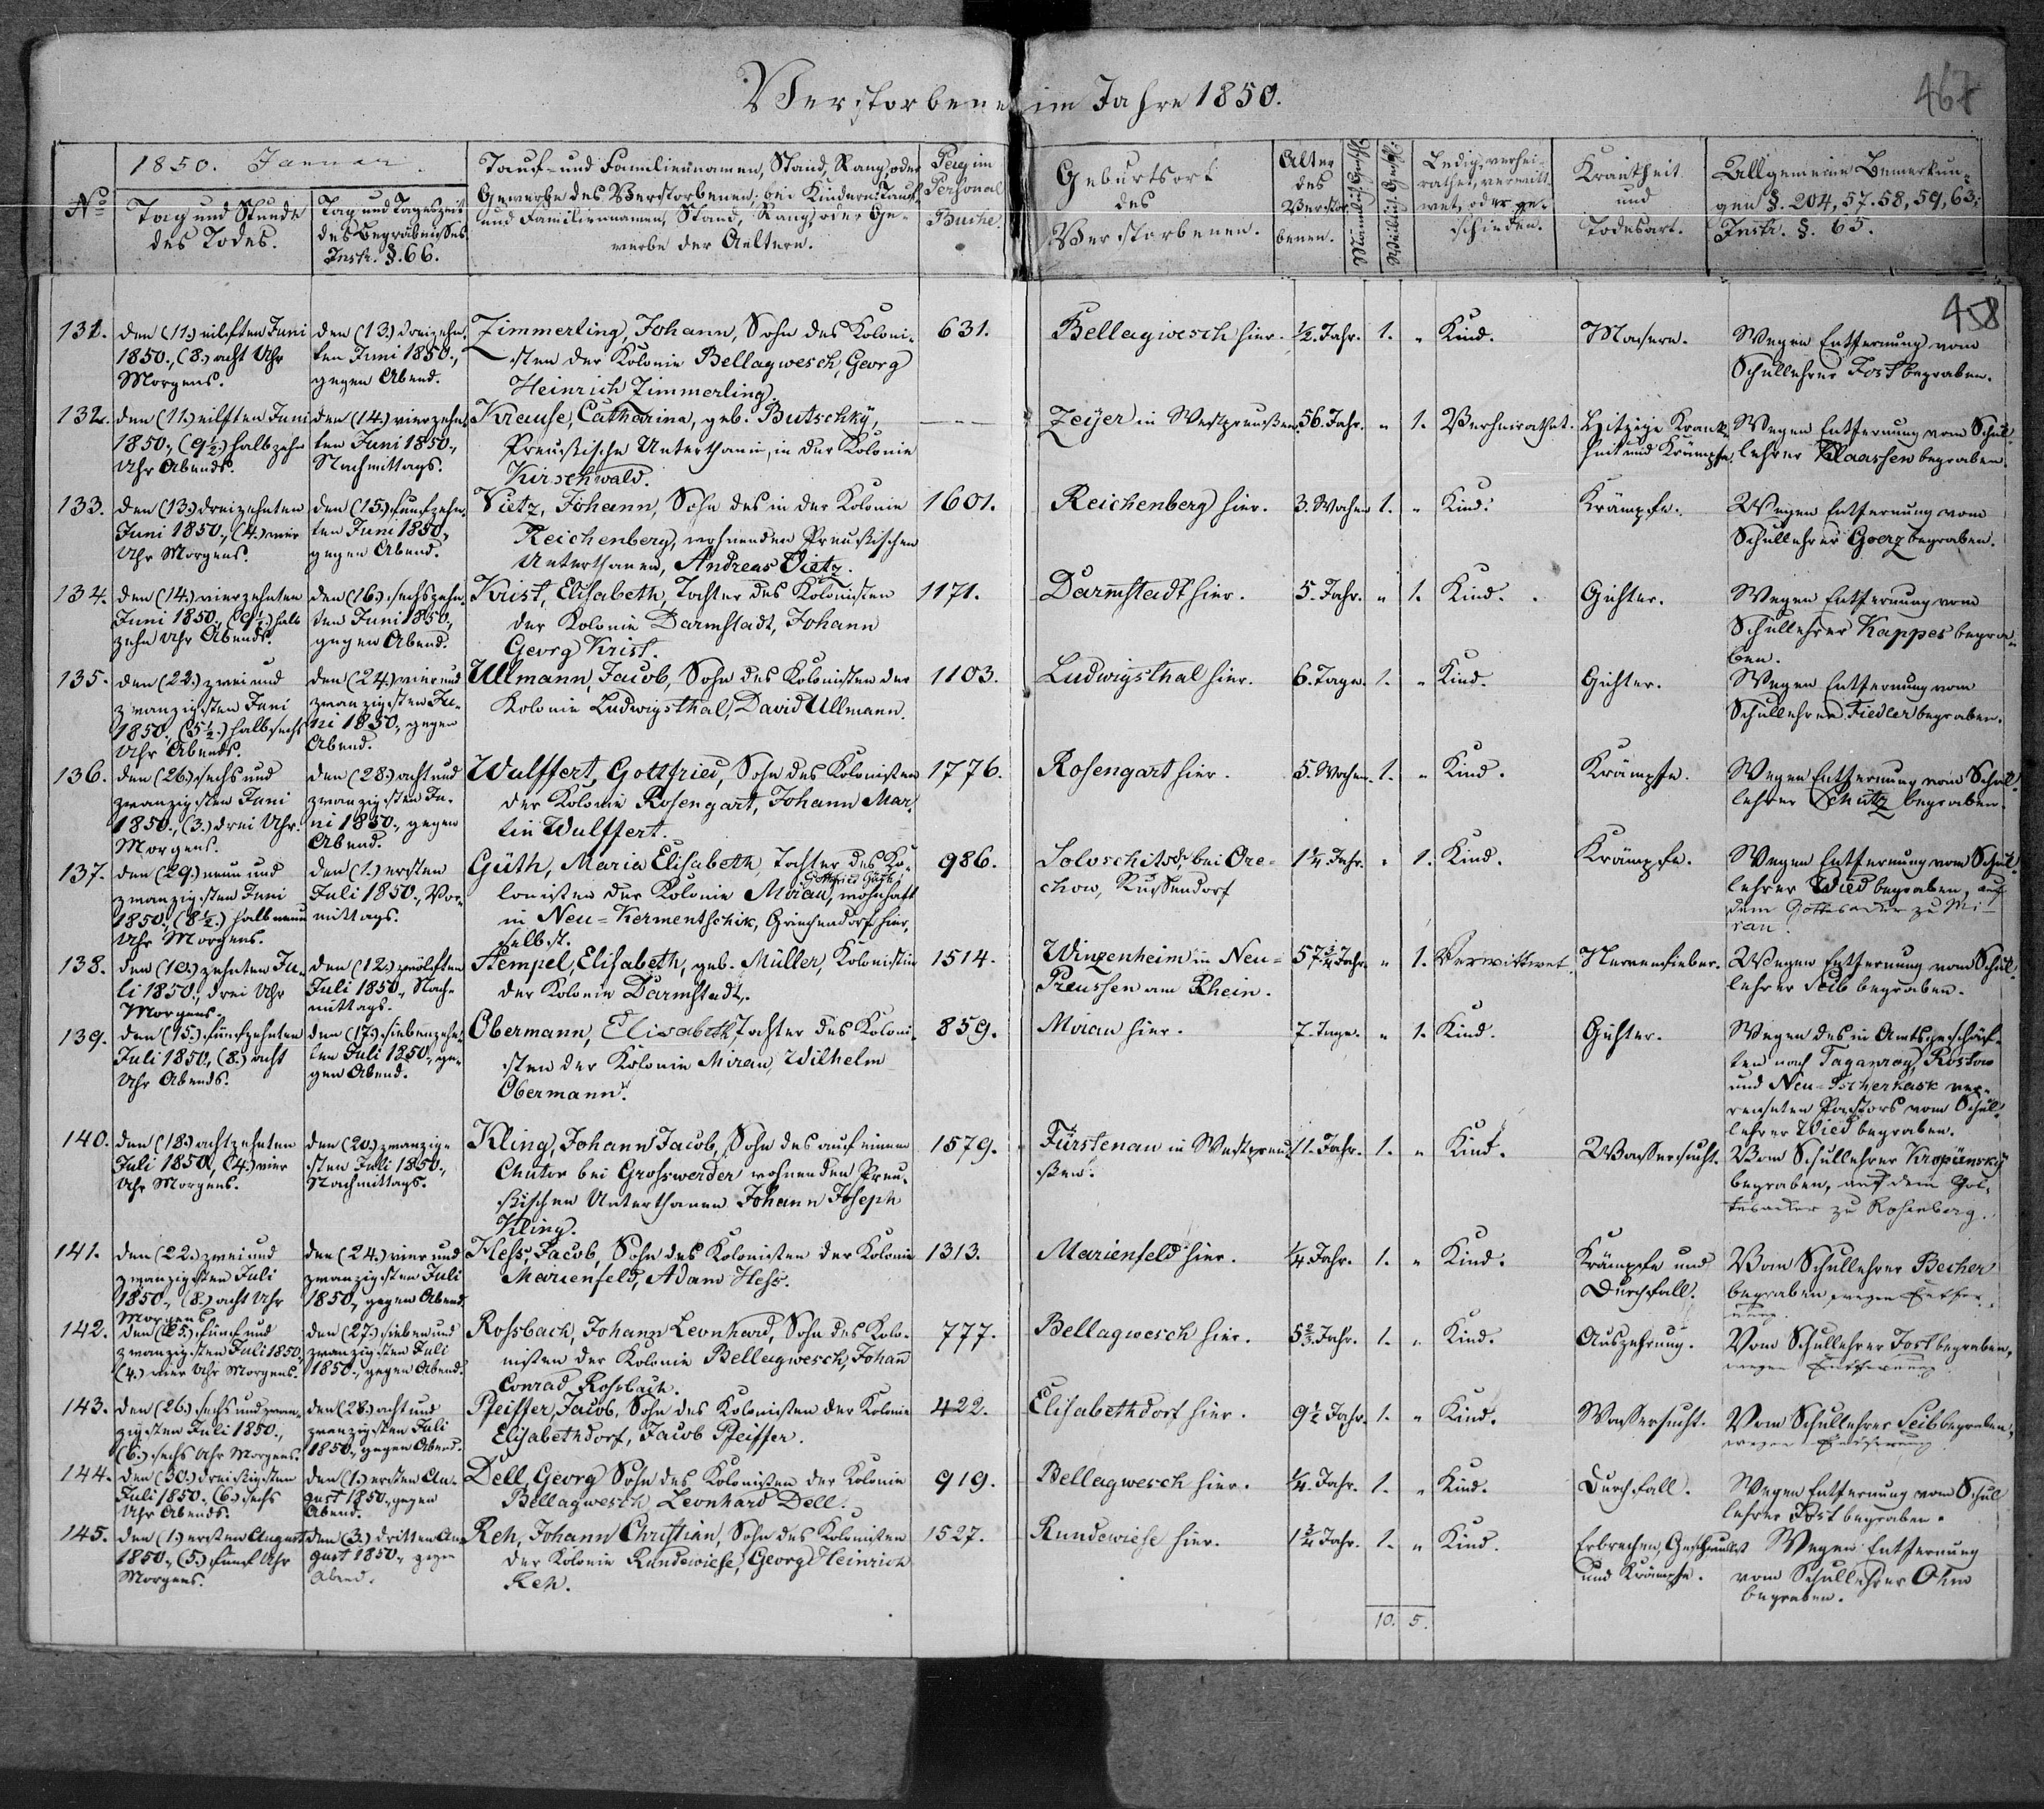 Verstorbene im Jahre 1850.
467
№
1850. Januar
Tag und Stunde
des Todes.
Tag und Tageszeit
des Begräbnisses
Instr. §. 66.
Tauf- und Familiennamen, Stand, Rang, oder
Gewerbe des Verstorbenen; bei Kindern: Tauf-
und Familiennamen, Stand, Rang, oder Ge-
werbe der Aeltern.
Pag im
Personal
Buche.
Geburtsort
des
Verstorbenen.
Alter
des
Verstor-
benen.
Männlich. Geschl.
Weiblich. Geschl.
Ledig, verhei-
rathet, verwitt-
wet, oder ge-
schieden.
Krankheit
und
Todesart.
Allgemeine Bemerkun-
gen §. 204, 57. 58, 59, 63;
Instr. §. 65.
458
131. den (11.) eilften Juni
1850., (8.) acht Uhr
Morgens.
den (13.) dreizehn-
ten Juni 1850.,
gegen Abend.
Zimmerling, Johann, Sohn des Koloni-
sten der Kolonie Bellagwesch, Georg
Heinrich Zimmerling.
631.
Bellagwesch hier.
½. Jahr.
1. „
Kind.
Masern.
Wegen Entfernung vom
Schullehrer Jost begraben.
132. den (11.) eilften Juni
1850., (9½.) halb zehn
Uhr Abends.
den (14.) vierzehn-
ten Juni 1850.,
Nachmittags.
Krause, Catharina, geb. Butschky,
Preußische Unterthanin, in der Kolonie
Kirschwald.
— — —
Zeÿer in Westpreußen.
56. Jahr.
„ 1.
Verheirathet.
Hitzige Krank-
heit und Krämpfe.
Wegen Entfernung vom Schul-
lehrer Klaassen begraben.
133. den (13.) dreizehnten
Juni 1850., (4.) vier
Uhr Morgens.
den (15.) fünfzehn-
ten Juni 1850.,
gegen Abend.
Vietz, Johann, Sohn des in der Kolonie
Reichenberg, wohnenden Preußischen
Unterthanen, Andreas Vietz.
1601.
Reichenberg hier.
3. Wochen
1. „
Kind.
Krämpfe.
Wegen Entfernung vom
Schullehrer Goerz begraben.
134. den (14.) vierzehnten
Juni 1850., (9½.) halb
zehn Uhr Abends.
den (16.) sechszehn-
ten Juni 1850.,
gegen Abend.
Krist, Elisabeth, Tochter des Kolonisten
der Kolonie Darmstadt, Johann
Georg Krist.
1171.
Darmstadt hier.
5. Jahr.
„ 1.
Kind.
Gichter.
Wegen Entfernung vom
Schullehrer Kappes begra-
ben.
135. den (22.) zwei und
zwanzigsten Juni
1850., (5½.) halb sechs
Uhr Abends.
den (24.) vier und
zwanzigsten Ju-
ni 1850., gegen
Abend.
Ullmann, Jacob, Sohn des Kolonisten der
Kolonie Ludwigsthal, David Ullmann.
1103.
Ludwigsthal hier.
6. Tage.
1. „
Kind.
Gichter.
Wegen Entfernung vom
Schullehrer Fiedler begraben.
136. den (26.) sechs und
zwanzigsten Juni
1850., (3.) drei Uhr
Morgens.
den (28.) acht und
zwanzigsten Ju-
ni 1850., gegen
Abend.
Wulffert, Gottfried, Sohn des Kolonisten
der Kolonie Rosengart, Johann Mar-
tin Wulffert.
1776.
Rosengart hier.
5. Wochen.
1. „
Kind.
Krämpfe.
Wegen Entfernung vom Schul-
lehrer Schütz begraben.
137. den (29.) neun und
zwanzigsten Juni
1850., (8½.) halb neun
Uhr Morgens.
den (1.) ersten
Juli 1850., Vor-
mittags.
Güth, Maria Elisabeth, Tochter des Ko-
Gottfried Güth,
lonisten der Kolonie Mirau, wohnhaft
in Neu-Kermentschik, Griechendorf hier-
selbst.
986.
bei Ore-
chow, Russendorf
1¼. Jahr.
„ 1.
Kind.
Krämpfe.
Wegen Entfernung vom Schul-
lehrer Wied begraben, auf
dem Gottesacker zu Mi-
rau.
138. den (10.) zehnten Ju-
li 1850., drei Uhr
Morgens.
den (12.) zwölften
Juli 1850., Nach-
mittags.
Stempel, Elisabeth, geb. Müller, Kolonistin
der Kolonie Darmstadt.
1514.
Winzenheim in Neu-
Preussen am Rhein.
57¾. Jahr.
„ 1.
Verwittwet.
Nervenfieber.
Wegen Entfernung vom Schul-
lehrer Seib begraben.
139. den (15.) fünfzehnten
Juli 1850., (8.) acht
Uhr Abends.
den (17.) siebenzehn-
ten Juli 1850., ge-
gen Abend.
Obermann, Elisabeth, Tochter des Koloni-
sten der Kolonie Mirau, Wilhelm
Obermann.
859.
Mirau hier.
7. Tage.
„ 1.
Kind.
Gichter.
Wegen des in Amtsgeschäf-
ten nach Taganrog, Rostow
und Neu-Tscherkask ver-
reisten Pastors vom Schul-
lehrer Wied begraben.
140. den (18.) achtzehnten
Juli 1850., (4.) vier
Uhr Morgens.
den (20.) zwanzig-
sten Juli 1850.,
Nachmittags.
Kling, Johann Jacob, Sohn des auf einem
Chutor bei Grosswerder wohnenden Preu-
ßischen Unterthanen Johann Joseph
Kling.
1579.
Fürstenau in Westpreu-
ßen.
11. Jahr.
1. „
Kind.
Wassersucht.
Vom Schullehrer Kropünsky
begraben, auf dem Got-
tesacker zu Rosenberg.
141. den (22.) zwei und
zwanzigsten Juli
1850., (8.) acht Uhr
Morgens
den (24.) vier und
zwanzigsten Juli
1850., gegen Abend.
Hess, Jacob, Sohn des Kolonisten der Kolonie
Marienfeld, Adam Hess.
1313.
Marienfeld hier.
¼. Jahr.
1. „
Kind.
Krämpfe und
Durchfall.
Vom Schullehrer Becher
begraben wegen Entfer-
nung.
142. den (25.) fünf und
zwanzigsten Juli 1850.,
(4.) vier Uhr Morgens.
den (27.) sieben und
zwanzigsten Juli
1850., gegen Abend.
Rossbach, Johann Leonhard, Sohn des Kolo-
nisten der Kolonie Bellagwesch, Johann
Conrad Rossbach.
777.
Bellagwesch hier.
5⅔. Jahr.
1. „
Kind.
Auszehrung.
Vom Schullehrer Jost begraben,
wegen Entfernung
143. den (26.) sechs und zwan-
zigsten Juli 1850.,
(6.) sechs Uhr Morgens.
den (28.) acht und
zwanzigsten Juli
1850., gegen Abend.
Pfeiffer, Jacob, Sohn des Kolonisten der Kolonie
Elisabethdorf, Jacob Pfeiffer.
422.
Elisabethdorf hier.
9½ Jahr.
1. „
Kind.
Wassersucht.
Vom Schullehrer Seib begraben,
wegen Entfernung
144. den (30.) dreißigsten
Juli 1850., (6.) sechs
Uhr Abends.
den (1.) ersten Au-
gust 1850., gegen
Abend.
Dell, Georg, Sohn des Kolonisten der Kolonie
Bellagwesch, Leonhard Dell.
919.
Bellagwesch hier.
¼. Jahr.
1. „
Kind.
Durchfall.
Wegen Entfernung vom Schul
lehrer Jost begraben.
145. den (1.) ersten August
1850., (5.) fünf Uhr
Morgens.
den (3.) dritten Au
gust 1850., gegen
Abend.
Reh, Johann Christian, Sohn des Kolonisten
der Kolonie Rundewiese, Georg Heinrich
Reh.
1527.
Rundewiese hier.
1¾ Jahr.
1. „
Kind.
Erbrechen, Geschwulst
und Krämpfe.
Wegen Entfernung
vom Schullehrer Ohm
begraben.
10. 5.